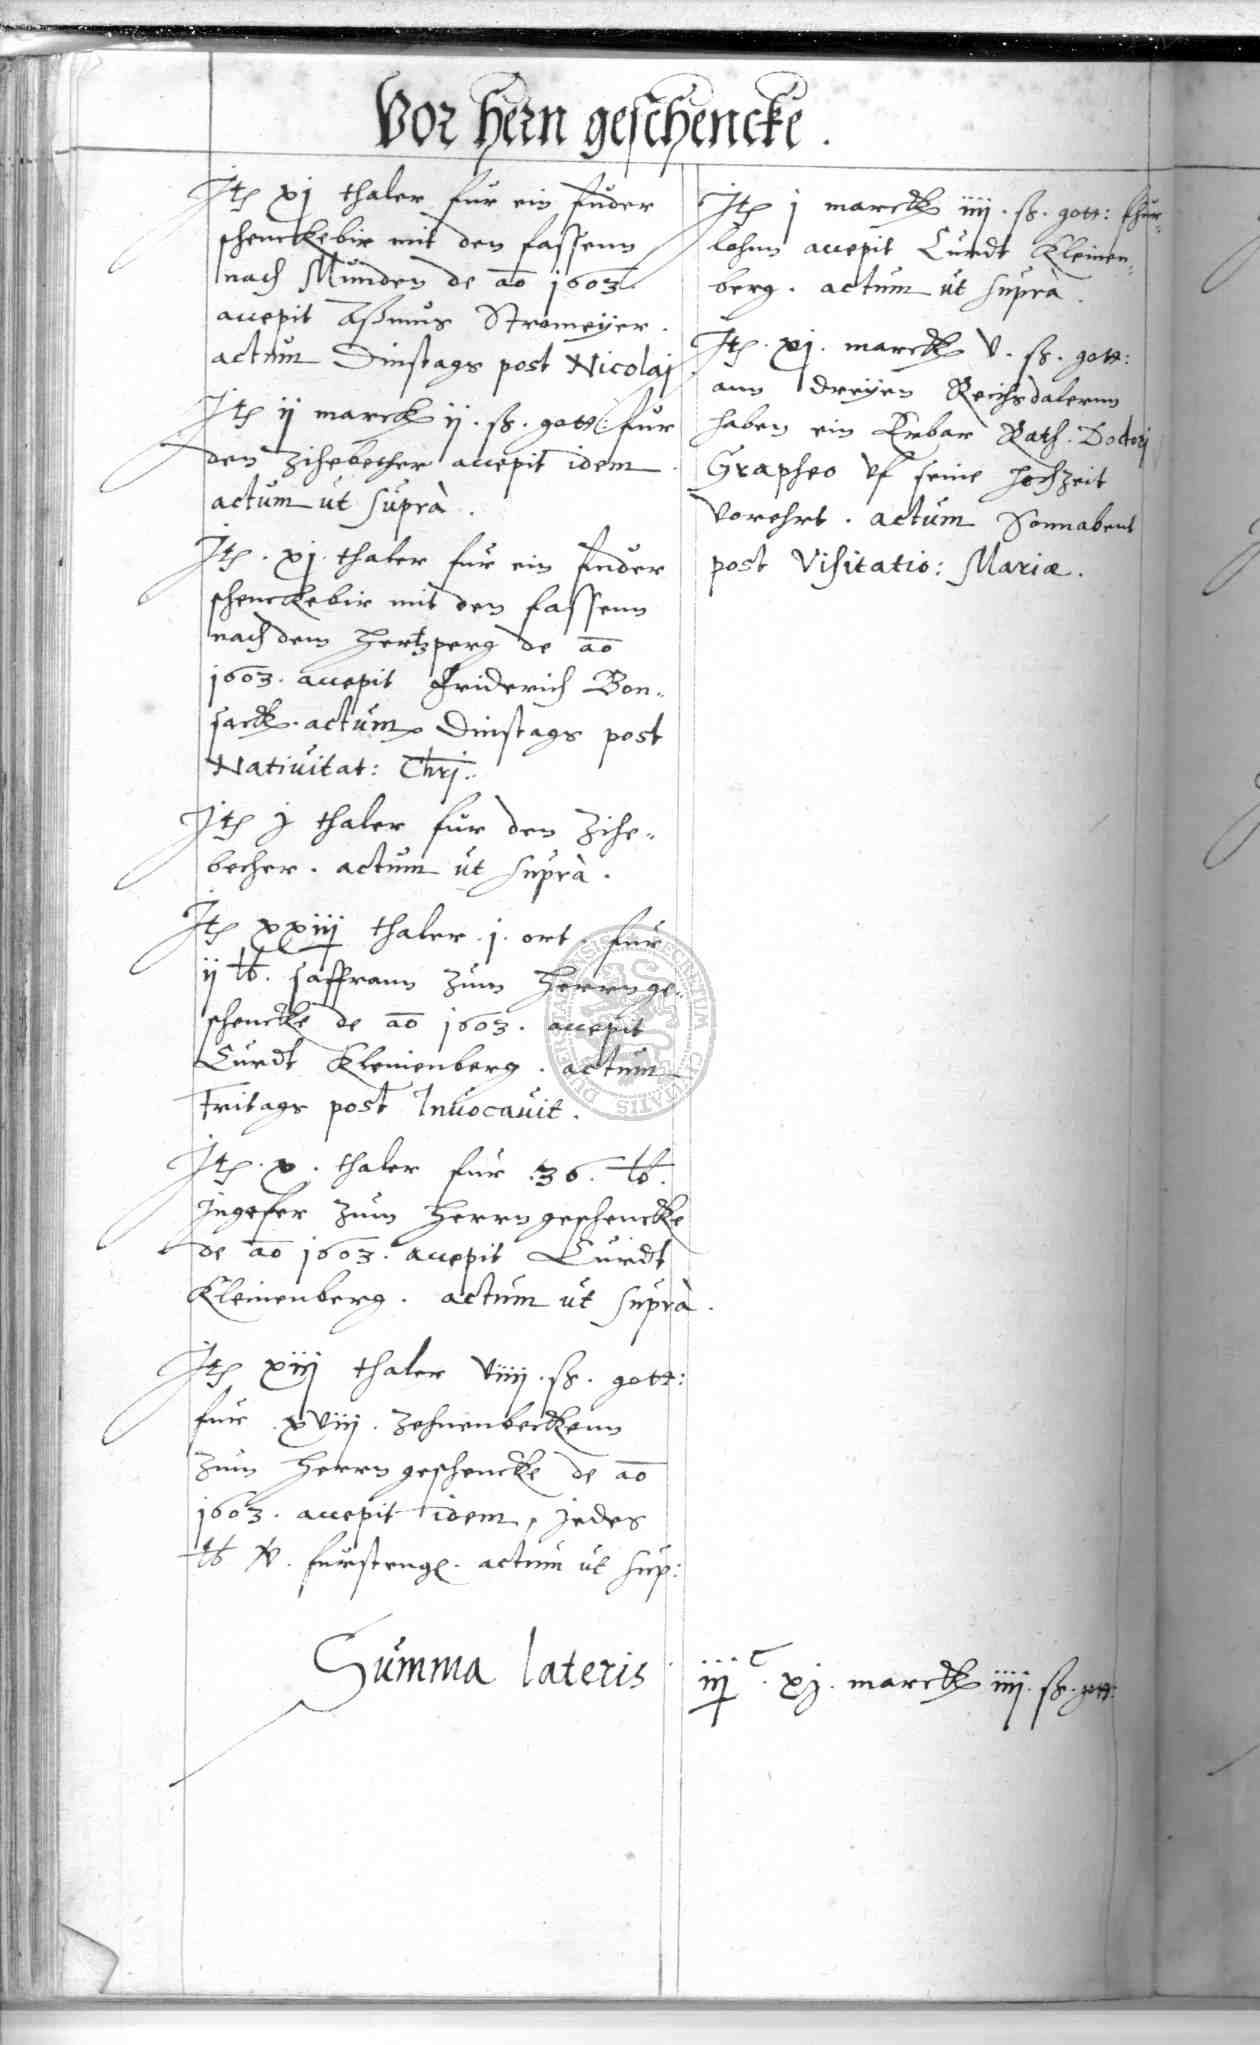 Vor hern geschencke.
Itē xj thaler fur ein fuder
schenckebir mit den fassenn
nach Münden de ao 1603.
accepit Aßmus Stromeÿer.
actum Dinstags post Nicolaj
Itē ij marck ij. ß. gott: fur
den Zihebecher accepit idem.
actum ut suprà.
Itē. xj. thaler fur ein fuder
schenckebir mit den fassenn
nach dem Hertzperg de ao
1603. accepit Friderich Bon-
sack. actum Dinstags post
Natiuitat: Chrj.
Itē j thaler fur den Zihe-
becher. actum ut suprà.
Itē xxiiij thaler. j. ort. fur
ij lb. saffrann zum Herrn ge-
schencke de ao 1603. accepit
Curdt Kleinenberg. actum
Fritags post Inuocauit.
Itē. x. thaler fur 36. lb.
Ingefer zum Herrn geschencke
de ao 1603. accepit Curdt
Kleinenberg. actum ut suprà.
Itē xiij thaler viiij. ß. gott:
fur xviij. beckenn
zum Herrn geschencke de ao
1603. accepit idem, jedes
lb actum ut sup:
Itē j marck iiij. ß. gott: fhur-
lohnn accepit Curdt Kleinen-
berg. actum ut suprà.
Itē. xj. marck v. ß. gott:
ann dreÿen Reichsdalernn
haben ein Erbar Rath. Doctorj
Grapheo vf seine Hochzeit
vorehrt. actum Sonnabent
post Visitatio: Mariæ.
Summa lateris iij c. xj. marck iiij. ß. gott:
DUDERSTADENSIS SECRETUM CIVITATIS